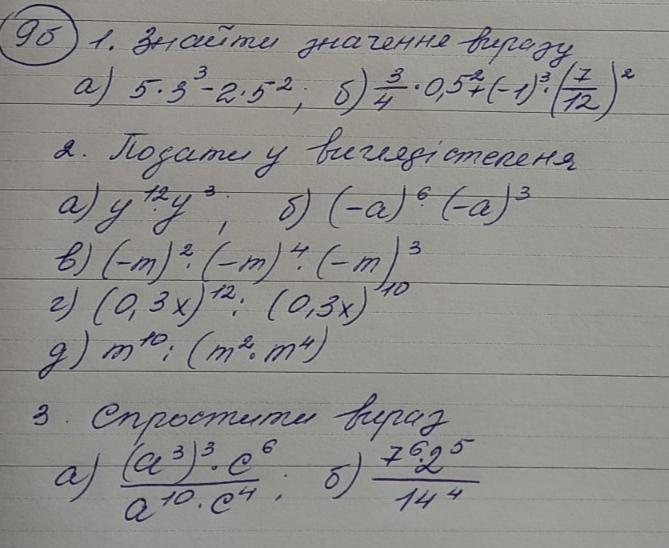 9б 1. Знайти значення виразу
а) 5·3³ - 2·5²; б) 3/4 · 0,5² + (-1)³ · (7/12)²
2. Подати у вигляді степеня
а) y¹² · y³; б) (-a)⁶ · (-a)³
в) (-m)² · (-m)⁴ · (-m)³
г) (0,3x)¹² : (0,3x)¹⁰
д) m¹⁰ : (m² · m⁴)
3. Спростити вираз
а) (a³)³ · c⁶ / a¹⁰ · c⁴; б) 7⁶ · 2⁵ / 14⁴